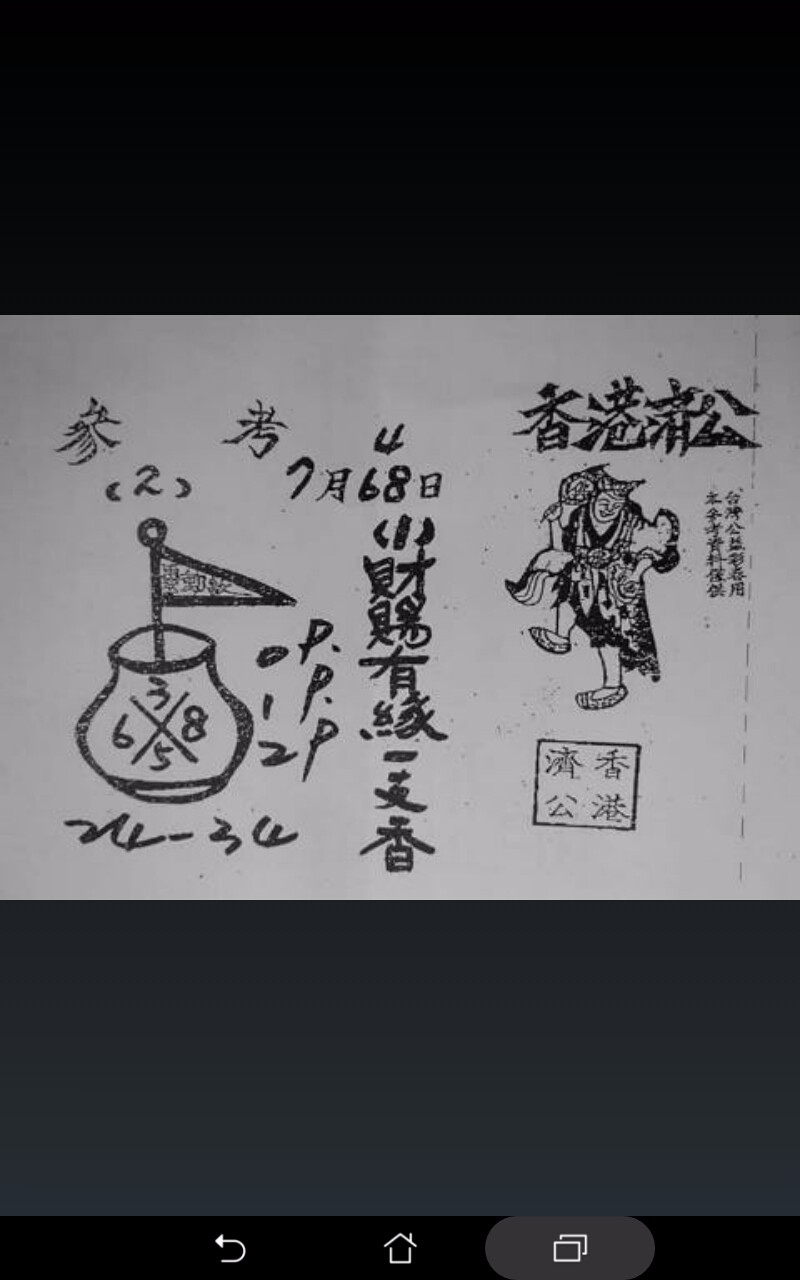 香港濟公
台灣公益彩券用
本參考資料僅供
香港
濟公
4
7月68日
(1)
財賜有緣一支香
參考
(2)
3
6 8
5
0P.
1P.
2P
24-34